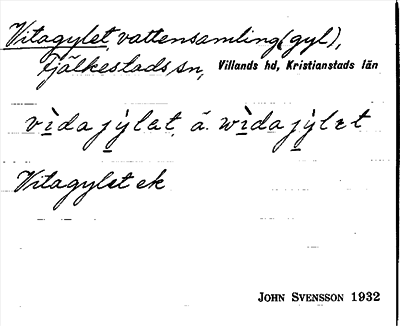 Vitagylet, vattensamling (gyl),
Fjälkestads sn, Villands hd, Kristianstads län
vìda jỳlat, ä. wìda jỳlɛt
Vitagylet ek
JOHN SVENSSON 1932